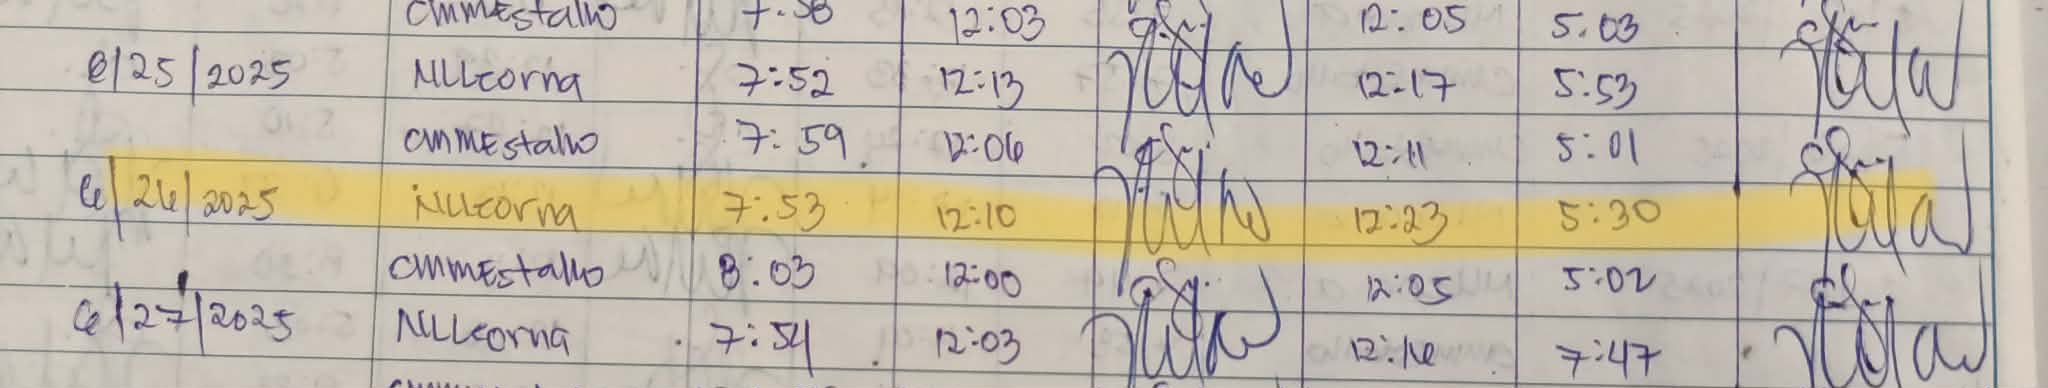 CMMEstallo 7:58 12:03 12:05 5:03
6/25/2025 NLLcorna 7:52 12:13 12:17 5:53
CMMEstallo 7:59 12:06 12:11 5:01
6/26/2025 NLLcorna 7:53 12:10 12:23 5:30
CMMEstallo 8:03 12:00 12:05 5:02
6/27/2025 NLLcorna 7:54 12:03 12:16 7:47